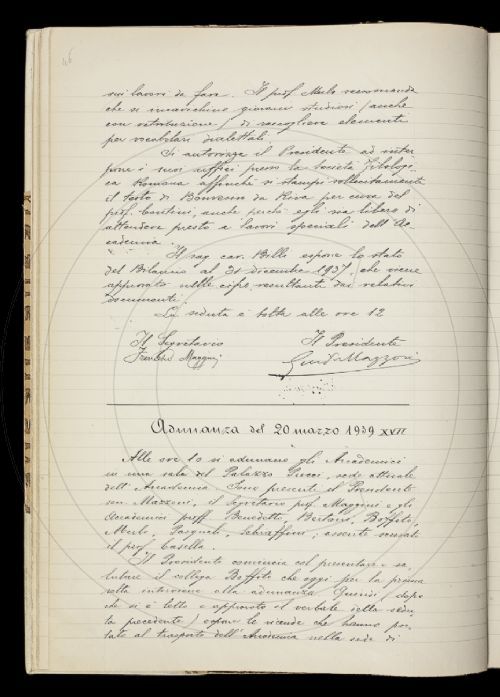 46
sui lavori da fare. Il prof. Merlo raccomanda
che si incarichino giovani studiosi (anche
con retribuzione) di raccogliere elementi
per vocabolari dialettali.
Si autorizza il Presidente ad inter
porre i suoi uffici presso la Società Filologi-
ca Romana affinché si stampi sollecitamente
il testo di Bonvesin da Riva per cura del
prof. Contini, anche perché egli sia libero di
attendere presto a lavori speciali dell'Ac
cademia.
Il rag. cav. Billi espone lo stato
del Bilancio al 31 dicembre 1937, che viene
approvato nelle cifre resultanti dai relativi
documenti.
La seduta è tolta alle ore 12
Il Segretario Il Presidente
Francesco Maggini Guido Mazzoni
Adunanza del 20 marzo 1939 XVII
Alle ore 10 si adunano gli Accademici
in una sala del Palazzo Pucci, sede attuale
dell'Accademia. Sono presenti il Presidente
sen. Mazzoni, il Segretario prof. Maggini e gli
Accademici proff. Benedetti, Bertoni, Boffito,
Merlo, Pasquali, Schiaffini; assente scusato
il prof. Casella.
Il Presidente comincia col presentare e sa-
lutare il collega Boffito che oggi per la prima
volta interviene alla adunanza. Quindi (dopo
che si è letto e approvato il verbale della sedu
ta precedente) espone le vicende che hanno por-
tato al trasporto dell'Accademia nella sede di